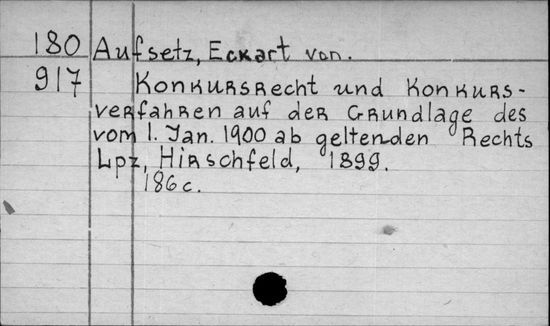 180 Aufsetz, Eckart von.
917 Konkursrecht und Konkurs-
verfahren auf der Grundlage des
vom 1. Jan. 1900 ab geltenden Rechts
Lpz, Hirschfeld, 1899.
186 c.